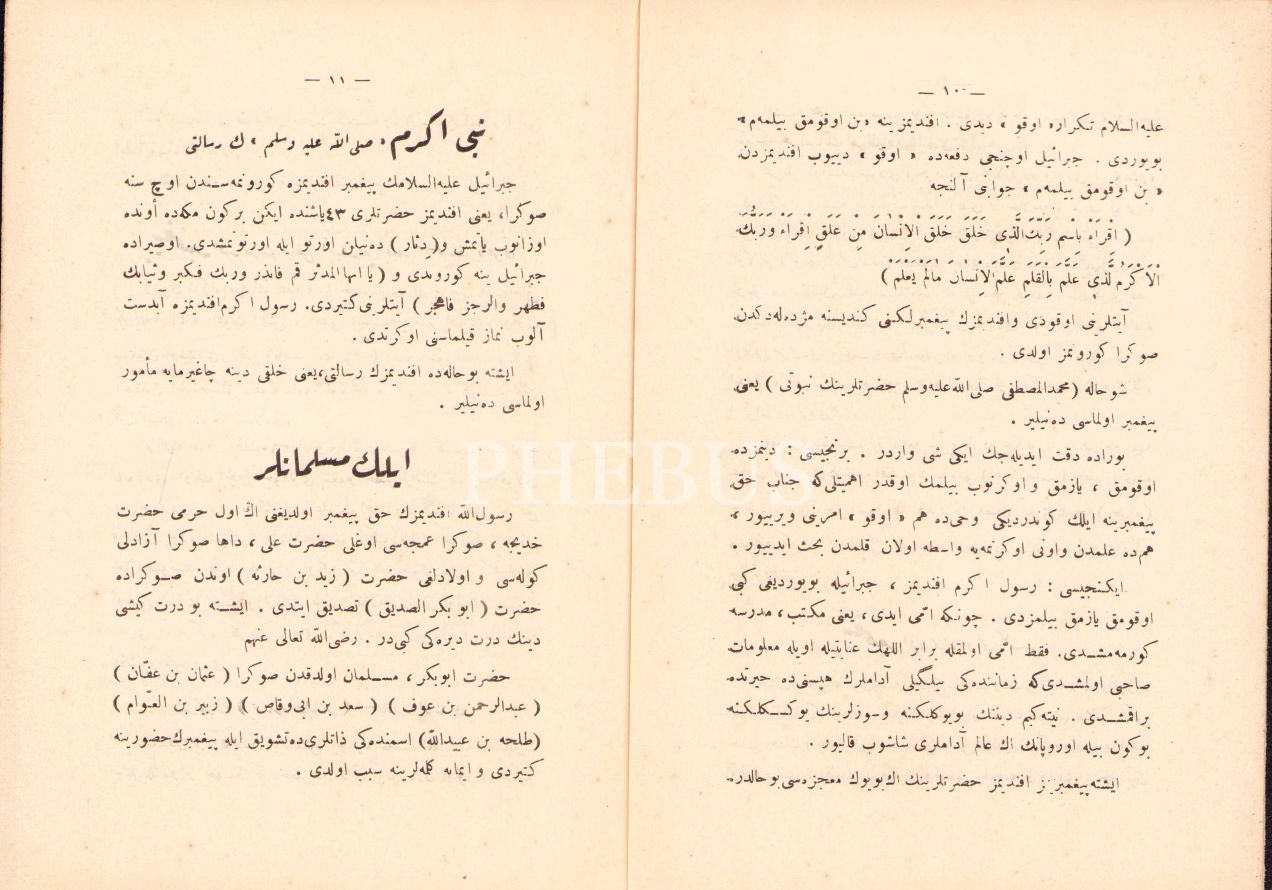 — ١٠ —
عليه‌السلام تكراره اوقو » ديدى . افنديمز ينه « بن اوقومق بيلمه‌م »
بويوردى . جبرائيل اوچنجى دفعه‌ده « اوقو » دييوب افنديمزدن
« بن اوقومق بيلمه‌م » جوابى آلنجه
( اِقْرَاءْ بِاسْمِ رَبِّكَ الَّذى خَلَقَ خَلَقَ الْاِنْسانَ مِنْ عَلَقٍ اِقْراءْ وَرَبُّكَ
الْاَكْرَمُ الَّذى عَلَّمَ بِالْقَلَمِ عَلَّمَ الْاِنْسانَ مالَمْ يَعْلَمْ )
آيتلرينى اوقودى وافنديمزك پيغمبرلكنى كنديسنه مژده‌له‌دكدن
صوكرا كورونمز اولدى .
شو حاله ( محمدالمصطفى صلى‌الله‌عليه‌وسلم حضرتلرينك نبوتى ) يعنى
پيغمبر اولماسى ده‌نيلير .
بوراده دقت ايديله‌جك ايكى شى واردر . برنجيسى : دينمزده
اوقومق ، يازمق و اوكرنوب بيلمك اوقدر اهميتلى‌كه جناب حق
پيغمبرينه ايلك كوندرديكى وحى‌ده هم « اوقو » امرينى ويرييور ،
هم‌ده علمدن واونى اوكرنمه‌يه واسطه اولان قلمدن بحث ايدييور .
ايكنجيسى : رسول اكرم افنديمز ، جبرائيله بويورديغى كبى
اوقومق يازمق بيلمزدى . چونكه امّى ايدى ، يعنى مكتب ، مدرسه
كورمه‌مشدى. فقط امّى اولمقله برابر اللهك عنايتيله اويله معلومات
صاحبى اولمشدى‌كه زماننده‌كى بيلگيلى آداملرك هپسنى‌ده حيرتده
براقمشدى . نيته‌كيم دينك بويوكلكنه وسوزلرينك يوكسكلكنه
بوكون بيله اوروپانك اك عالم آداملرى شاشوب قاليور .
ايشته پيغمبريمز افنديمز حضرتلرينك اك بويوك معجزه‌سى بوحالدر.
— ١١ —
نبى اكرم « صلى الله عليه وسلم » ك رسالتى
جبرائيل عليه‌السلامك پيغمبر افنديمزه كورونمه‌سندن اوچ سنه
صوكرا، يعنى افنديمز حضرتلرى ٤٣ياشنده ايكن بركون مكه‌ده أونده
اوزانوب ياتمش و( دثار ) ده‌نيلن اورتو ايله اورتونمشدى. اوصيراده
جبرائيل ينه كوروندى و ( يا ايها المدثر قم فانذر وربك فكبر وثيابك
فطهر والرجز فاهجر ) آيتلرينى كتيردى. رسول اكرم‌افنديمزه آبدست
آلوب نماز قيلماسنى اوكرتدى .
ايشته بوحاله‌ده افنديمزك رسالتى،يعنى خلقى دينه چاغيرمايه مأمور
اولماسى ده‌نيلير .
ايلك مسلمانلر
رسول‌الله افنديمزك حق پيغمبر اولديغنى اڭ اول حرمى حضرت
خديجه ، صوكرا عمجه‌سى اوغلى حضرت على ، داها صوكرا آزادلى
كوله‌سى و اولادلغى حضرت ( زيد بن حارثه ) اوندن صوكراده
حضرت ( ابو بكر الصديق ) تصديق ايتدى . ايشته بو درت كيشى
دينك درت ديره‌كى كبى‌در . رضى‌الله تعالى عنهم
حضرت ابوبكر ، مسلمان اولدقدن صوكرا ( عثمان بن عفّان )
( عبدالرحمن بن عوف ) ( سعد بن ابى‌وقاص ) ( زبير بن العوام )
(طلحه بن عبيدالله) اسمنده‌كى ذاتلرى‌ده تشويق ايله پيغمبرك‌حضورينه
كتيردى و ايمانه كلمه‌لرينه سبب اولدى .
PHEBUS